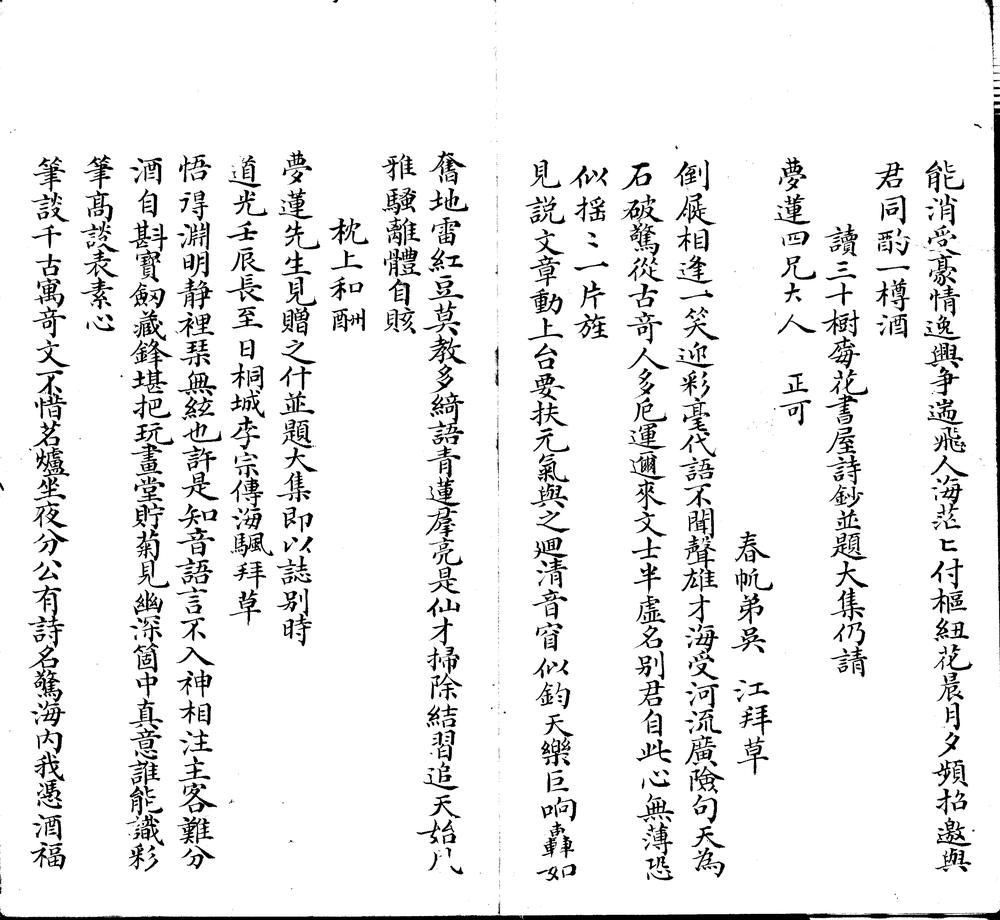 能消受豪情逸興爭遄飛人海茫〻付樞紐花晨月夕頻招邀與
君同酌一樽酒
讀三十樹梅花書屋詩鈔並題大集仍請
夢蓮四兄大人 正可
春帆弟吳 江拜草
倒屣相逢一笑迎彩毫代語不聞聲雄才海受河流廣險句天為
石破驚從古奇人多厄運邇來文士半虛名别君自此心無薄恐
似揺〻一片旌
見説文章動上台要扶元氣與之廻清音窅似鈞天樂巨响轟如
奮地雷紅豆莫教多綺語青蓮羣亮是仙才掃除結習追天始凡
雅騷離體自賅
枕上和酬
夢蓮先生見贈之什並題大集即以誌别時
道光壬辰長至日桐城李宗傳海颿拜草
悟得淵明静裡琹無絃也許是知音語言不入神相注主客難分
酒自斟寶劔藏鋒堪把玩畫堂貯菊見幽深箇中真意誰能識彩
筆髙談表素心
筆談千古寓竒文不惜茗爐坐夜分公有詩名驚海内我憑酒福